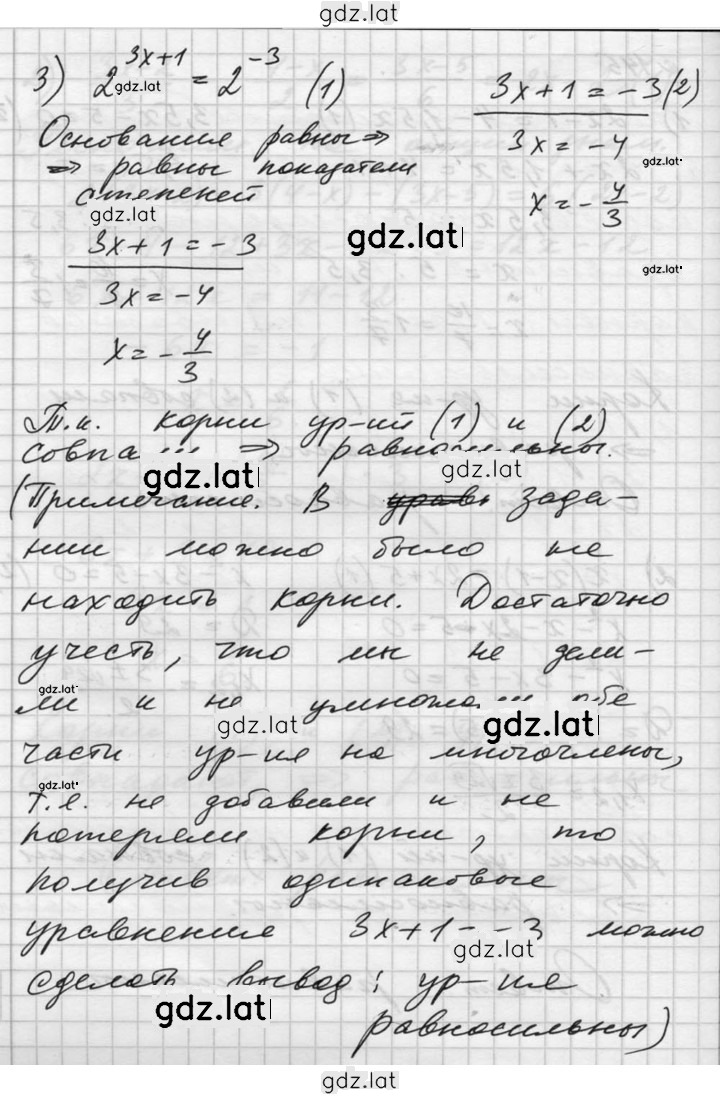 gdz.lat
3) 2^{3x+1} = 2^{-3} (1)
gdz.lat
Основания равны ⇒
⇒ равны показатели
степеней
gdz.lat
3x+1 = -3
3x = -4
x = -4/3
3x+1 = -3 (2)
3x = -4
gdz.lat
x = -4/3
gdz.lat
gdz.lat
Т.к. корни ур-ий (1) и (2)
совпа ⇒ равносильны.
gdz.lat
gdz.lat
(Примечание. В зада-
нии можно было не
находить корни. Достаточно
учесть, что мы не дели-
gdz.lat
ли и не умножа
gdz.lat
gdz.lat
части ур-ия на многочлены,
gdz.lat
т.е. не добавили и не
потеряли корни, то
получив одинаковые
уравнение 3x+1 - -3 можно
gdz.lat
сделать вывод: ур-ия
gdz.lat
равносильны)
gdz.lat